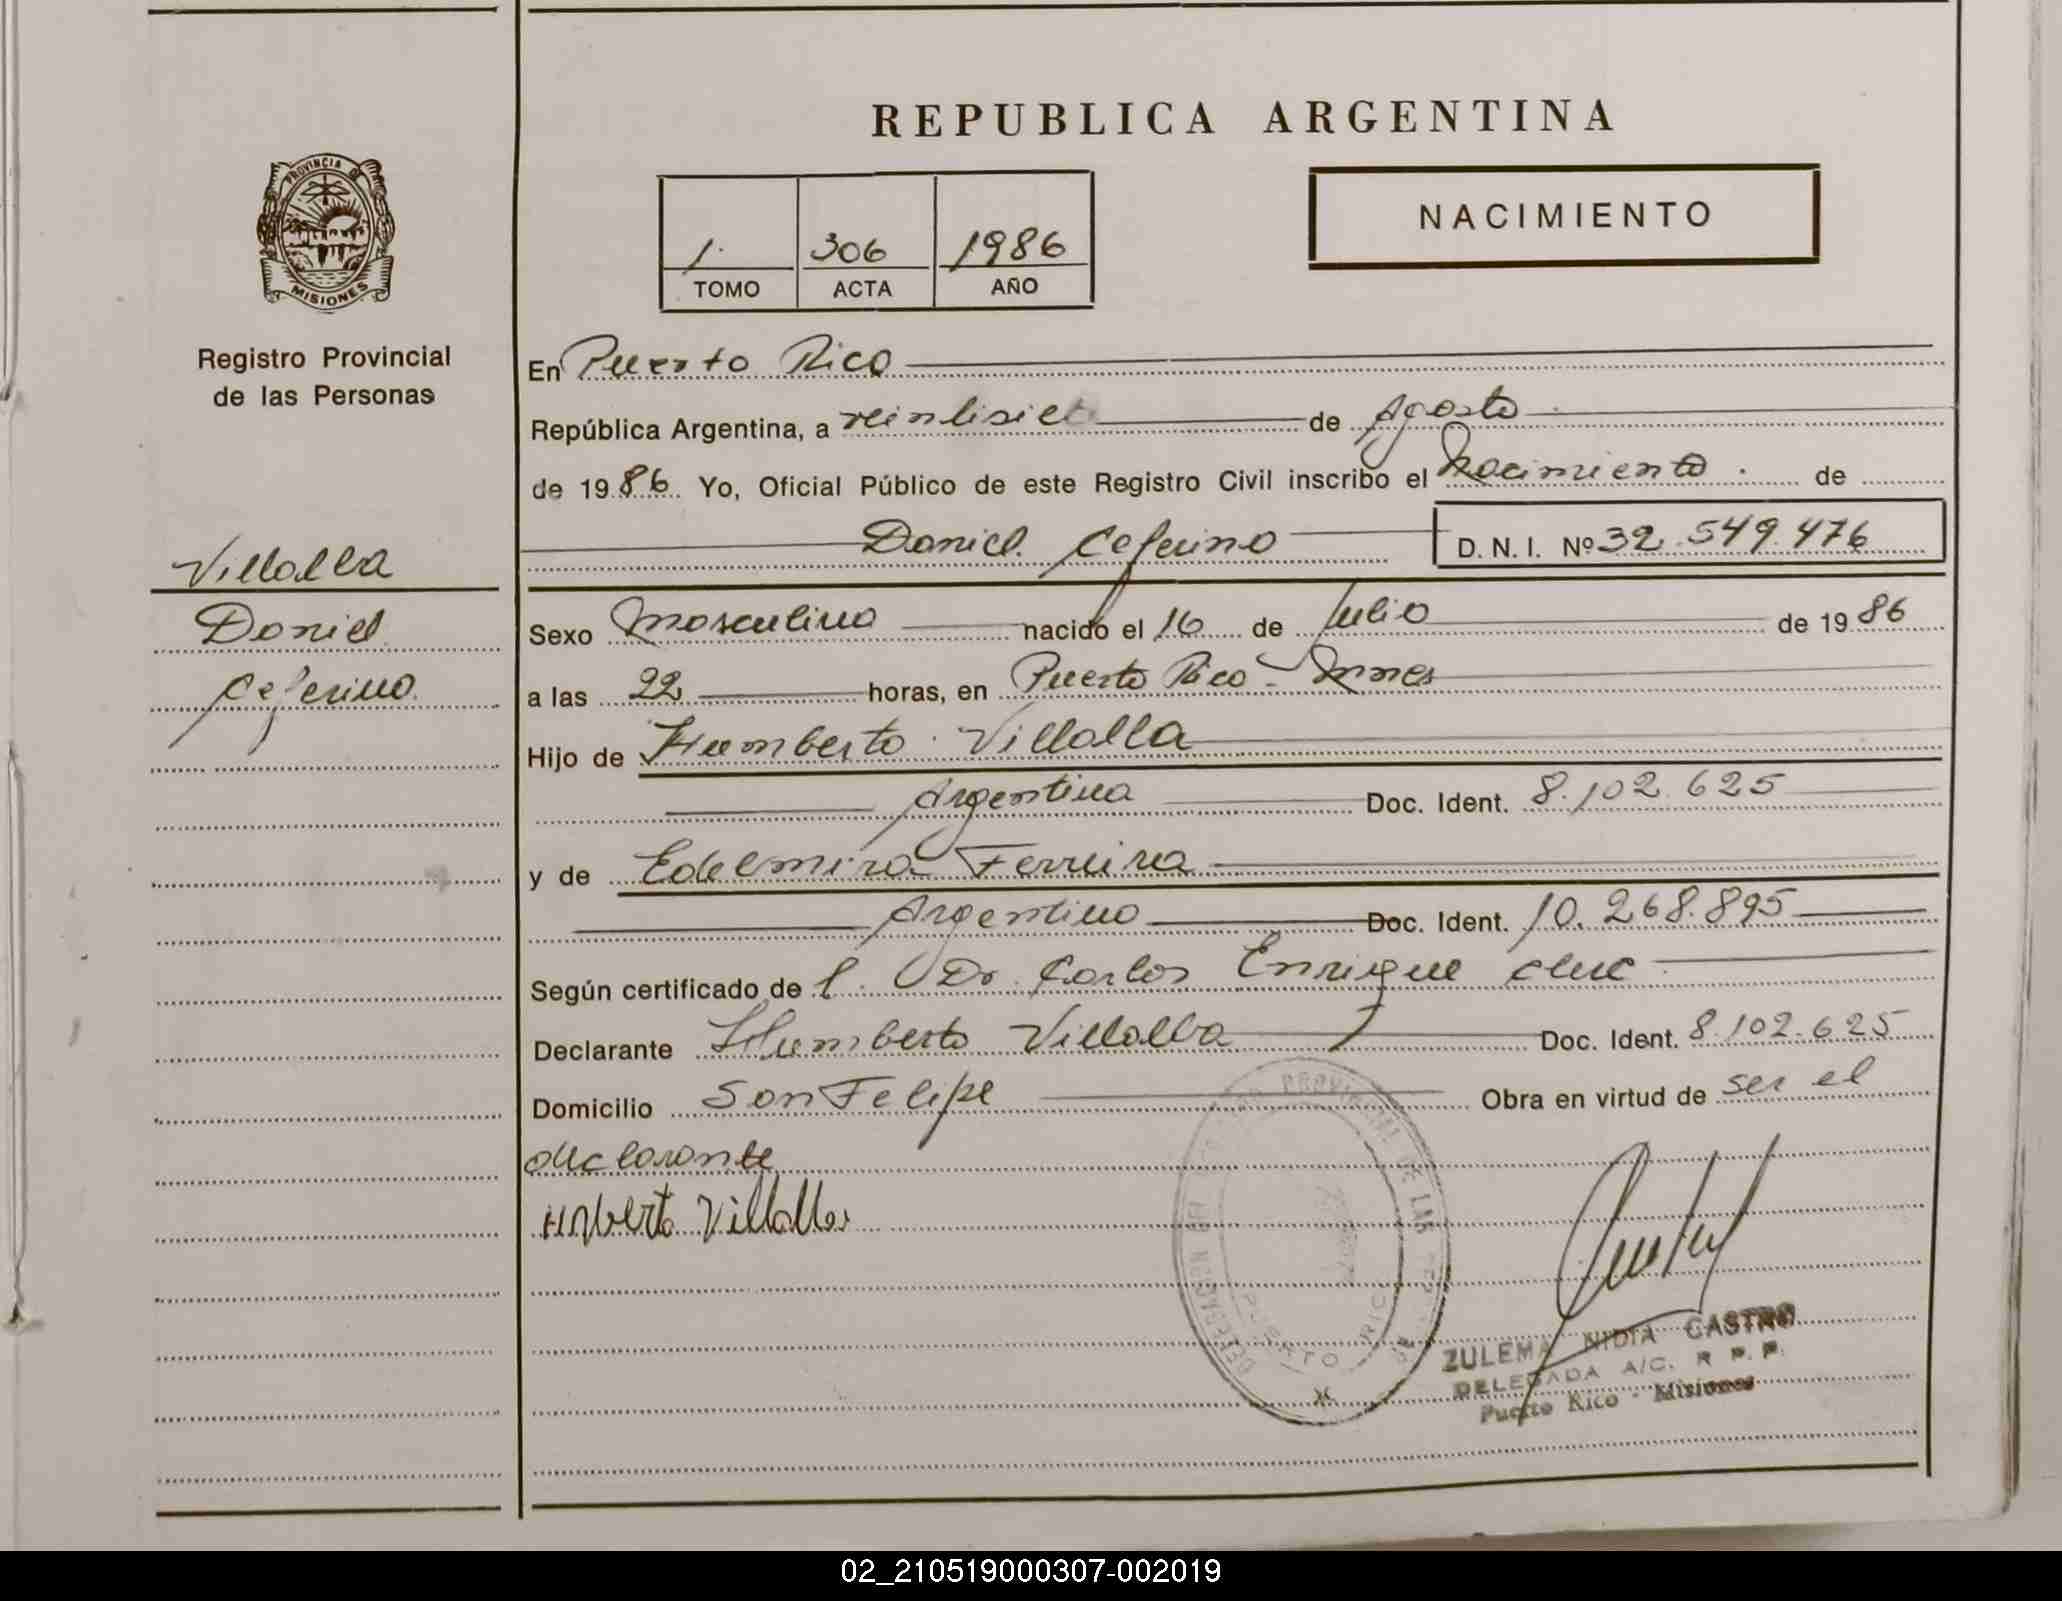 REPUBLICA ARGENTINA
PROVINCIA DE
MISIONES
Registro Provincial
de las Personas
1.
TOMO
306
ACTA
1986
AÑO
NACIMIENTO
Villalba
Daniel
Ceferino.
En Puerto Rico
República Argentina, a veintisiete de Agosto
de 1986. Yo, Oficial Público de este Registro Civil inscribo el Nacimiento. de
Daniel Ceferino D. N. I. Nº 32.549.476
Sexo Masculino nacido el 16 de Julio de 1986
a las 22 horas, en Puerto Rico - Mnes
Hijo de Humberto Villalba
Argentina Doc. Ident. 8.102.625
y de Edelmira Ferreira
Argentina Doc. Ident. 10.268.895
Según certificado de l. Dr. Carlos Enrique
Declarante Humberto Villalba Doc. Ident. 8.102.625
Domicilio San Felipe Obra en virtud de ser el
declarante
Villalba
PUERTO RICO
ZULEMA NIDIA CASTRO
DELEGADA A/C. R. P. P.
Puerto Rico - Misiones
02_210519000307-002019